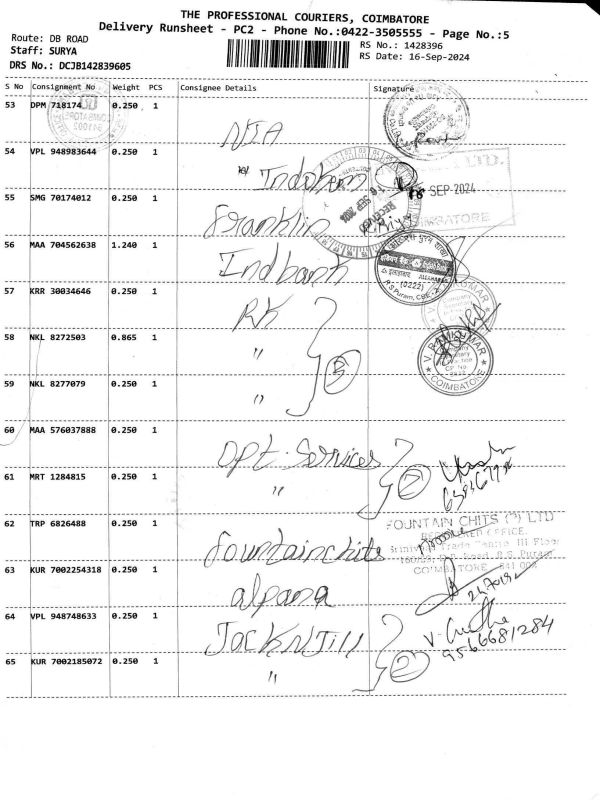 THE PROFESSIONAL COURIERS, COIMBATORE
Delivery Runsheet - PC2 - Phone No.:0422-3505555 - Page No.:5
Route: DB ROAD
RS No.: 1428396
Staff: SURYA
RS Date: 16-Sep-2024
DRS No.: DCJB142839605
S No Consignment No Weight PCS Consignee Details Signature
53 DPM 718174 0.250 1
NIA
54 VPL 948983644 0.250 1
SEP 2024
55 SMG 70174012 0.250 1
Franklin
COIMBATORE
56 MAA 704562638 1.240 1
Indbank
(0222)
R S Puram, CBE-2
57 KRR 30034646 0.250 1
RK
58 NKL 8272503 0.865 1
"
3
V. RAMKUMAR
COIMBATORE
59 NKL 8277079 0.250 1
"
60 MAA 576037888 0.250 1
Dpt. Services
61 MRT 1284815 0.250 1
"
2
62 TRP 6826488 0.250 1
Fountainchits
FOUNTAIN CHITS (P) LTD
REGISTERED OFFICE,
Trade Centre III Floor
R.S. Puram
COIMBATORE 641 002
63 KUR 7002254318 0.250 1
alpana
64 VPL 948748633 0.250 1
JackNJill
9566681284
65 KUR 7002185072 0.250 1
"
2